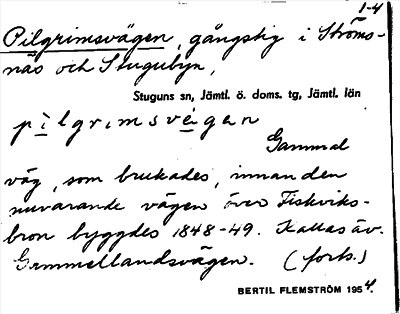 1-4
Pilgrimsvägen, gångstig i Ströms-
näs och Stugubyn,
Stuguns sn, Jämtl. ö. doms. tg, Jämtl. län
pilgrimsvégan
Gammal
väg, som brukades, innan den
nuvarande vägen över Fiskviks-
bron byggdes 1848-49. Kallas äv.
Gammellandsvägen. (forts.)
BERTIL FLEMSTRÖM 1954.